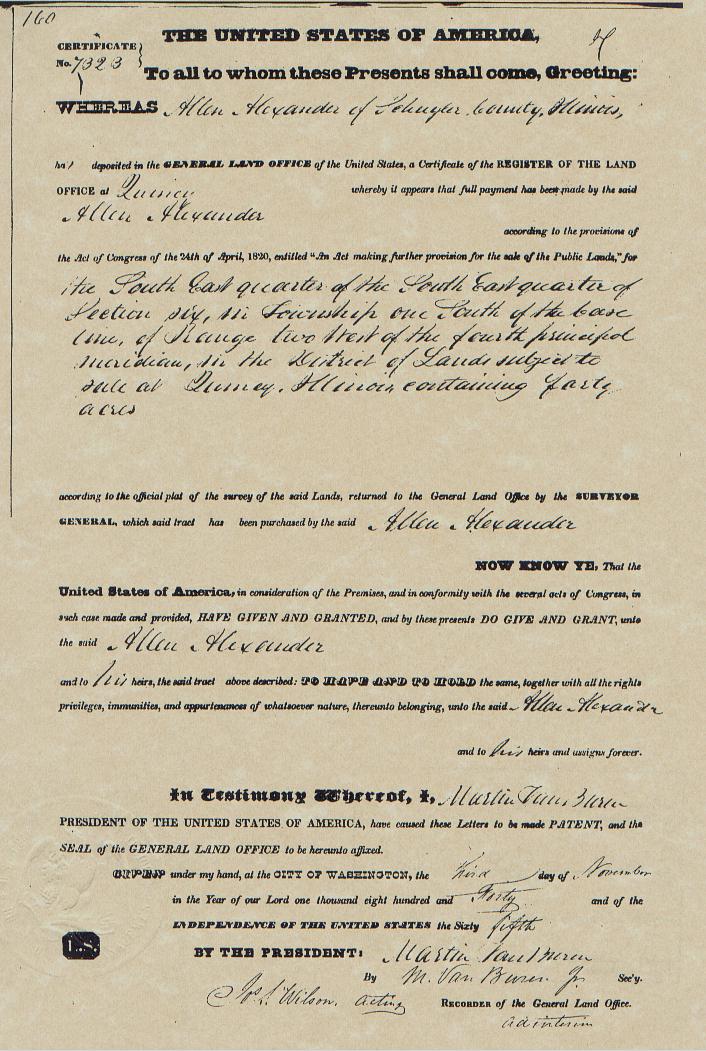 160
THE UNITED STATES OF AMERICA,
CERTIFICATE
No. 7323
To all to whom these Presents shall come, Greeting:
WHEREAS Allen Alexander of Schuyler County, Illinois,
ha deposited in the GENERAL LAND OFFICE of the United States, a Certificate of the REGISTER OF THE LAND
OFFICE at Quincy whereby it appears that full payment has been made by the said
Allen Alexander
according to the provisions of
the Act of Congress of the 24th of April, 1820, entitled "An Act making further provision for the sale of the Public Lands," for
the South East quarter of the South East quarter of
Section six, in Township one South of the base
line, of Range two West of the fourth principal
meridian, in the District of Lands subject to
sale at Quincy, Illinois, containing forty
acres
according to the official plat of the survey of the said Lands, returned to the General Land Office by the SURVEYOR
GENERAL, which said tract has been purchased by the said Allen Alexander
NOW KNOW YE, That the
United States of America, in consideration of the Premises, and in conformity with the several acts of Congress, in
such case made and provided, HAVE GIVEN AND GRANTED, and by these presents DO GIVE AND GRANT, unto
the said Allen Alexander
and to his heirs, the said tract above described: TO HAVE AND TO HOLD the same, together with all the rights
privileges, immunities, and appurtenances of whatsoever nature, thereunto belonging, unto the said Allen Alexander
and to his heirs and assigns forever.
In Testimony Whereof, I, Martin Van Buren
PRESIDENT OF THE UNITED STATES OF AMERICA, have caused these Letters to be made PATENT, and the
SEAL of the GENERAL LAND OFFICE to be hereunto affixed.
GIVEN under my hand, at the CITY OF WASHINGTON, the third day of November
in the Year of our Lord one thousand eight hundred and Forty and of the
INDEPENDENCE OF THE UNITED STATES the Sixty fifth
L.S.
BY THE PRESIDENT: Martin Van Buren
By M. Van Buren Jr. Sec'y.
Jos. S. Wilson, acting RECORDER of the General Land Office.
ad interim